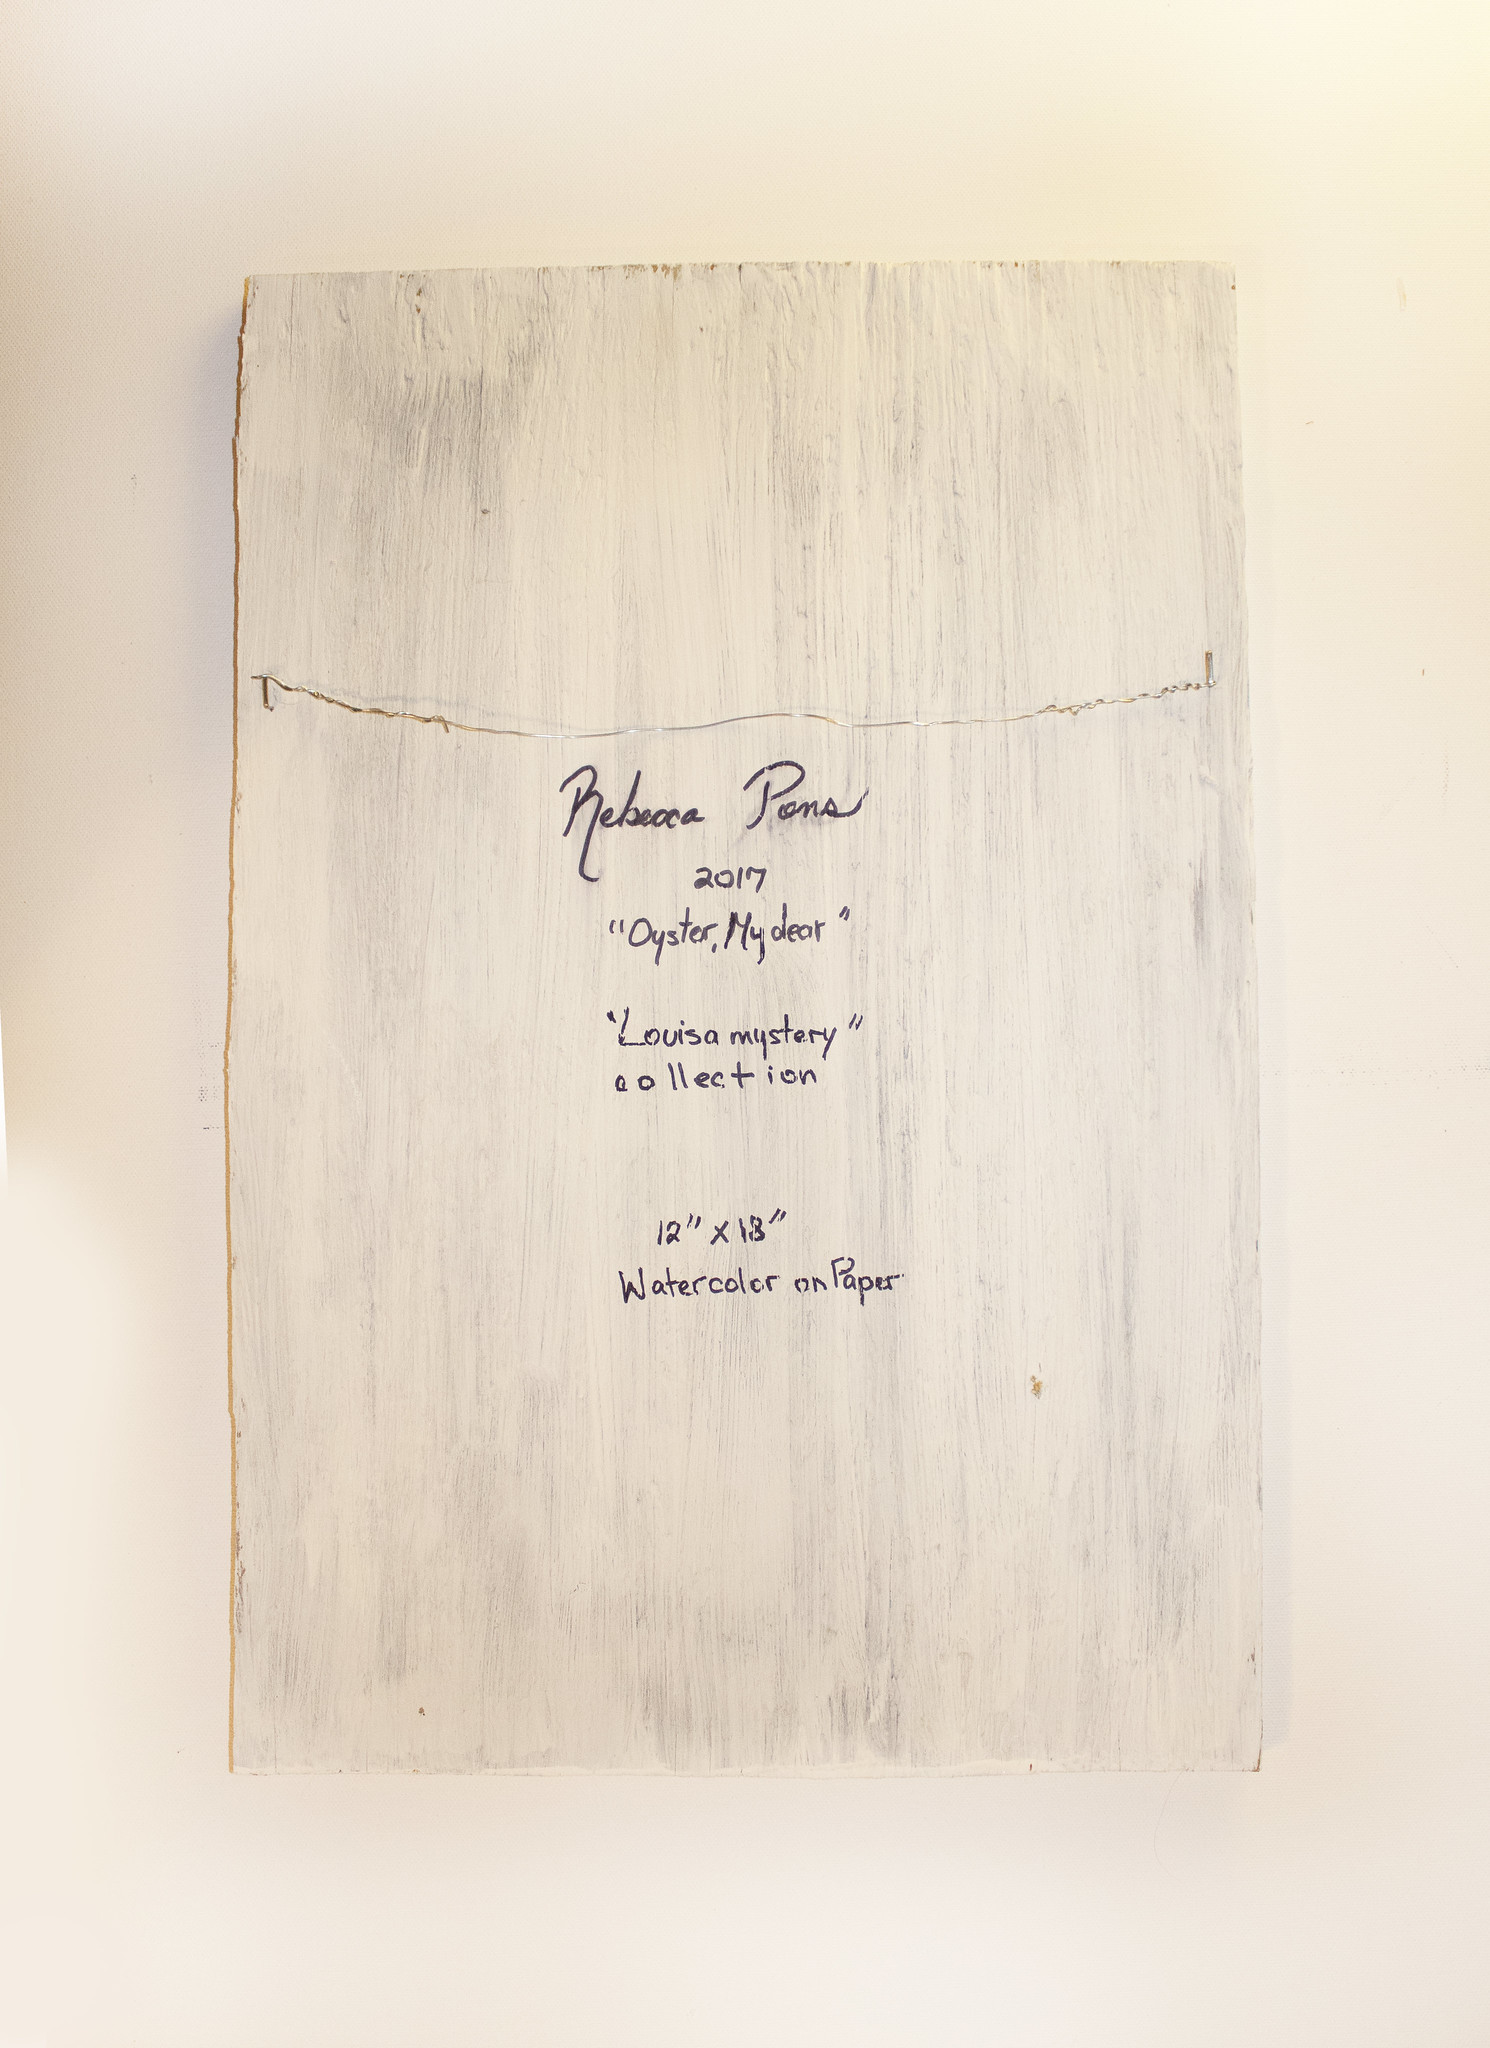 Rebecca Pons
2017
"Oyster, My dear"
"Louisa mystery"
collection
12" x 18"
Watercolor on Paper